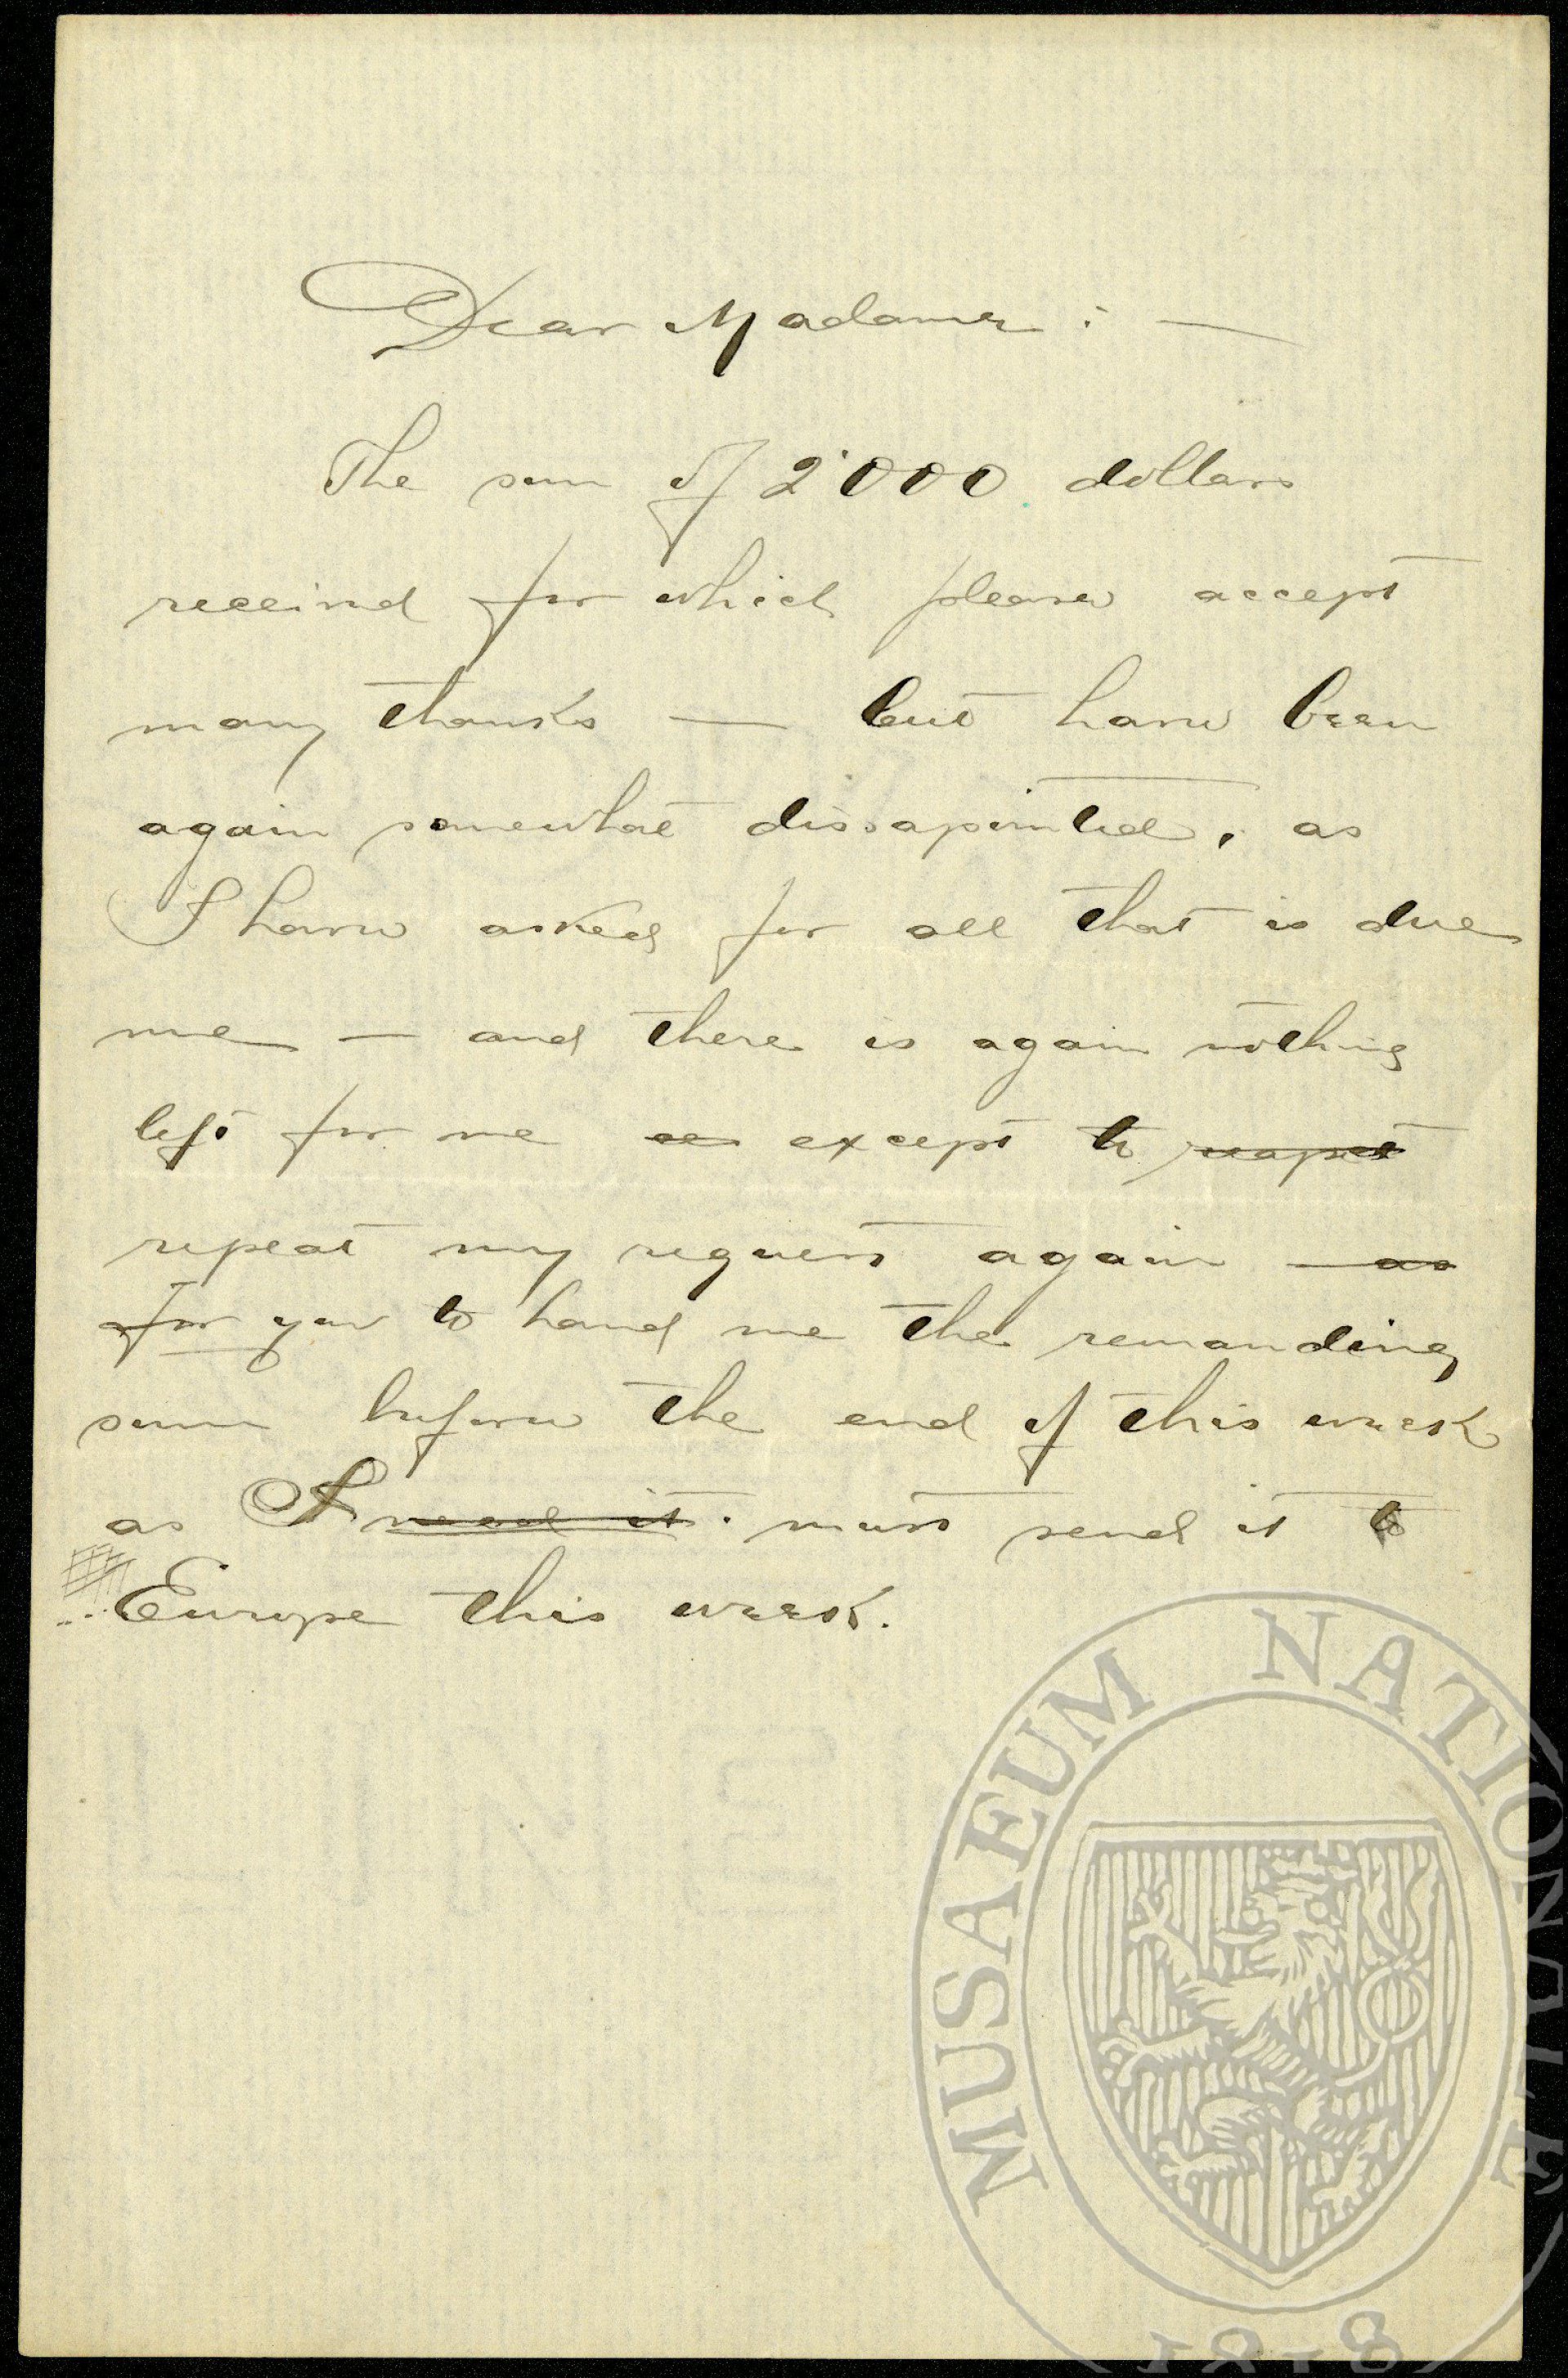 Dear Madame : —
The sum of 2000 dollars
received for which please accept
many thanks — but have been
again somewhat dissapointed, as
I have asked for all that is due
me — and there is again nothing
left for me as except to reapet
repeat my request again — as
for you to hand me the remanding
sum before the end of this week
as I need it . must send it to
Europe this week.
MUSAEUM NATIONALE
1818